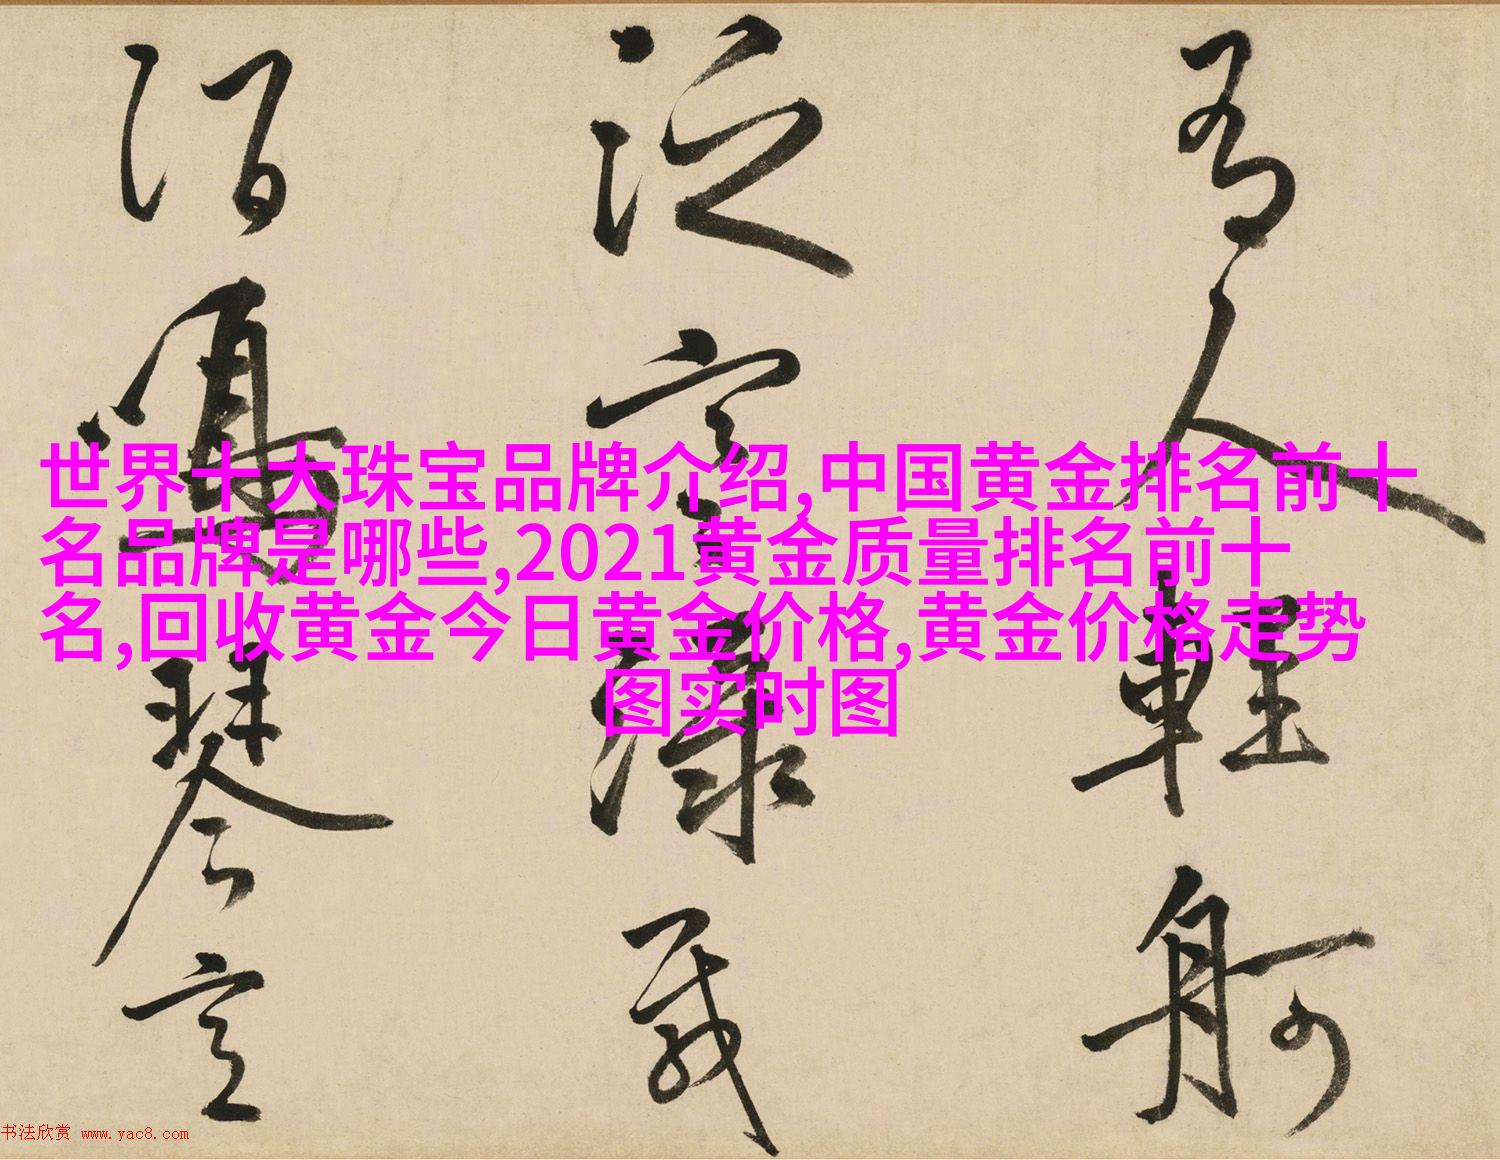 有人輕躬
泛宅漾
陌鳴琴立
世界十大珠宝品牌介绍,中国黄金排名前十
名品牌是哪些,2021黄金质量排名前十
名,回收黄金今日黄金价格,黄金价格走势
图实时图
书法欣赏 www.yac8.com